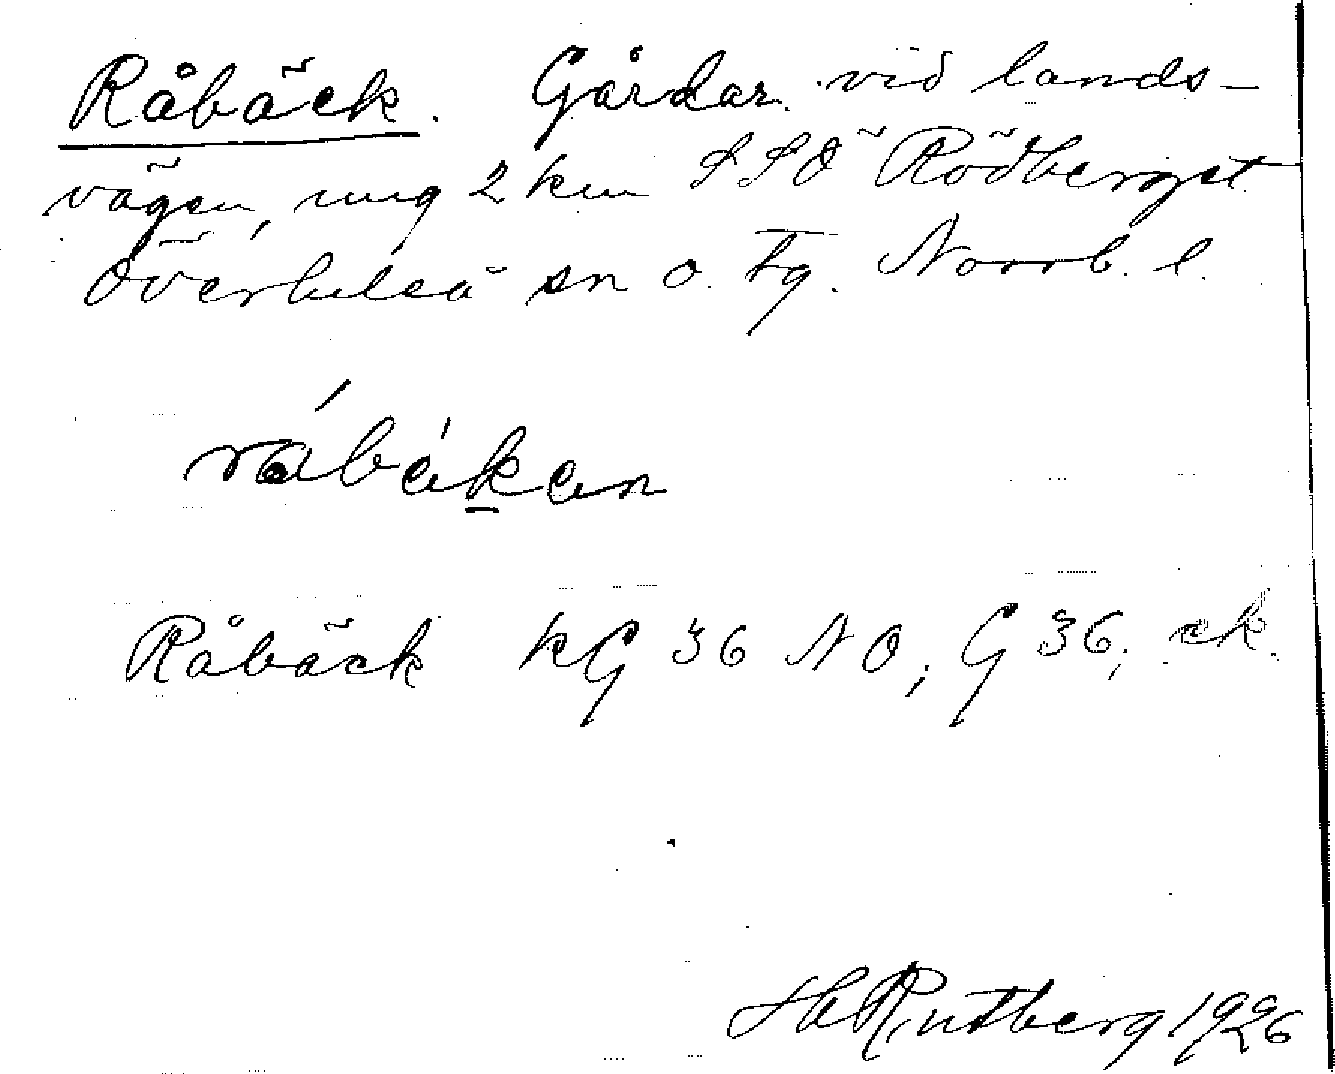 Råbäck. Gårdar vid lands-
vägen, ung 2 km SSÖ Rödberget
Överluleå sn o. tg. Norrb. l.
råbäkan
Råbäck kG 36 NO, G 36, ek.
H Rutberg 1926